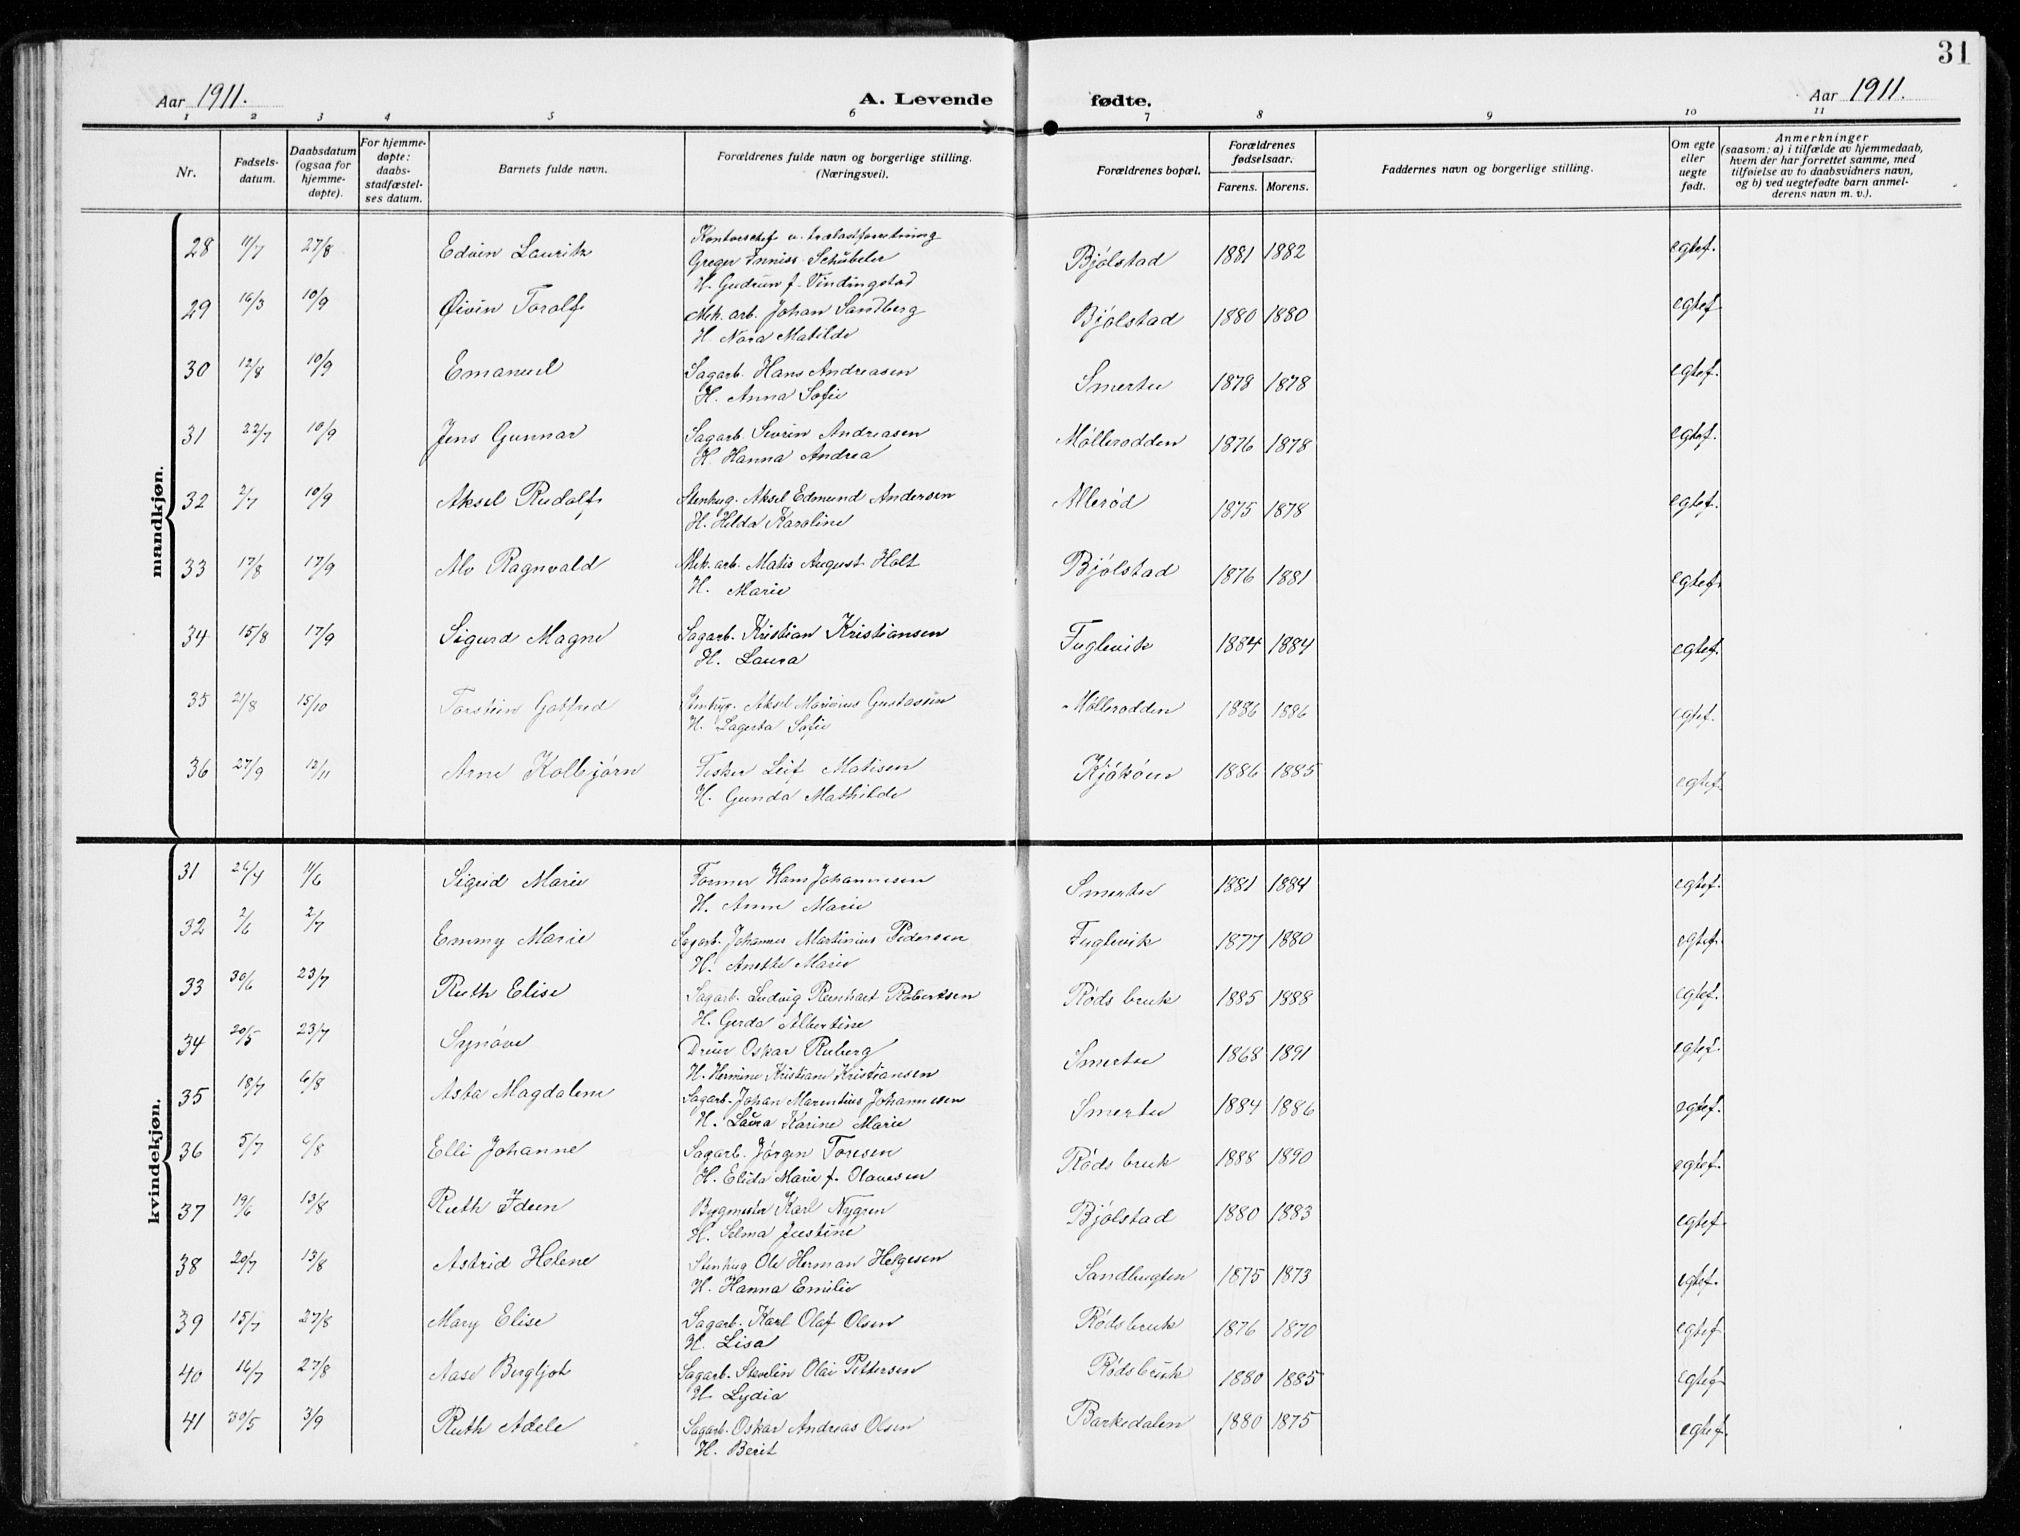 31
Aar 1911. A. Levende fødte. Aar 1911.
1 2 3 4 5 6 7 8 9 10 11
Nr.
Fødsels-
datum.
Daabsdatum
(ogsaa for
hjemme-
døpte).
For hjemme-
døpte:
daabs-
stadfæstel-
ses datum.
Barnets fulde navn.
Forældrenes fulde navn og borgerlige stilling.
(Næringsvei).
Forældrenes bopæl.
Forældrenes
fødselsaar.
Farens. Morens.
Faddernes navn og borgerlige stilling.
Om egte
eller
uegte
født.
Anmerkninger
(saasom: a) i tilfælde av hjemmedaab,
hvem der har forrettet samme, med
tilføielse av to daabsvidners navn,
og b) ved uegtefødte barn anmel-
derens navn m. v.).
mandkjøn.
Kontorchef v. trælastforretning
28 11/7 27/8 Edvin Lauritz Greger Schübeler Bjølstad 1881 1882 egtef.
H. Gudrun f. Vindingstad
29 16/3 10/9 Øivin Toralf Mek. arb. Johan Sandberg Bjølstad 1880 1880 egtef.
H. Nora Matilde
30 12/8 10/9 Emanuel Sagarb. Hans Andreasen Smertu 1878 1878 egtef.
H. Anna Sofie
31 22/7 10/9 Jens Gunnar Sagarb. Sevrin Andreasen Møllerodden 1876 1878 egtef.
H. Hanna Andrea
32 2/7 10/9 Aksel Rudolf Stenhug. Aksel Edmund Andersen Allerød 1875 1878 egtef.
H. Hilda Karoline
33 17/8 17/9 Alv Ragnvald Mek. arb. Matis August Holt Bjølstad 1876 1881 egtef.
H. Marie
34 15/8 17/9 Sigurd Magne Sagarb. Kristian Kristiansen Fuglevik 1884 1884 egtef.
H. Laura
35 21/8 15/10 Torstein Gotfred Stenhug. Aksel Marius Gustavsen Møllerodden 1886 1886 egtef.
H. Lagerta Sofie
36 27/9 12/11 Arne Kolbjørn Fisker Leif Matisen Kjøkøen 1886 1885 egtef.
H. Gunda Mathilde
kvindekjøn.
31 26/4 11/6 Sigrid Marie Former Hans Johannesen Smertu 1881 1884 egtef.
H. Anne Marie
32 2/6 2/7 Emmy Marie Sagarb. Johannes Martinius Pedersen Fuglevik 1877 1880 egtef.
H. Anette Marie
33 30/6 23/7 Ruth Elise Sagarb. Ludvig Reinhart Robertsen Røds bruk 1885 1888 egtef.
H. Gerda Albertine
34 20/5 23/7 Synøve Driver Oskar Ruberg Smertu 1868 1891 egtef.
H. Hermine Kristiane Kristiansen
35 18/7 6/8 Asta Magdalene Sagarb. Johan Marentius Johannesen Smertu 1884 1886 egtef.
H. Laura Karine Marie
36 5/7 6/8 Elli Johanne Sagarb. Jørgen Toresen Røds bruk 1888 1890 egtef.
H. Elida Marie f. Olavesen
37 19/6 13/8 Ruth Iden Bygmester Karl Nygren Bjølstad 1880 1883 egtef
H. Selma Justine
38 20/7 13/8 Astrid Helene Stenhug Ole Herman Helgesen Sandbugten 1875 1873 egtef.
H. Hanna Emilie
39 15/7 27/8 Mary Elise Sagarb. Karl Olaf Olsen Røds bruk 1876 1870 egtef
H. Lisa
40 16/7 27/8 Aase Bergljot Sagarb. Stevelin Olai Pettersen Røds bruk 1880 1885 egtef
H. Lydia
41 30/5 3/9 Ruth Adele Sagarb. Oskar Andreas Olsen Barkedalen 1880 1875 egtef.
H. Berit